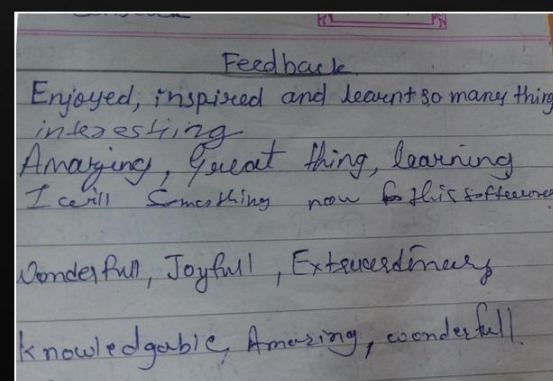 Feedback
Enjoyed, inspired and learnt so many thing
interesting
Amazing, Great thing, learning
I will something now this software
Wonderfull, Joyfull, Extraordinary
Knowledgable, Amazing, wonderfull.